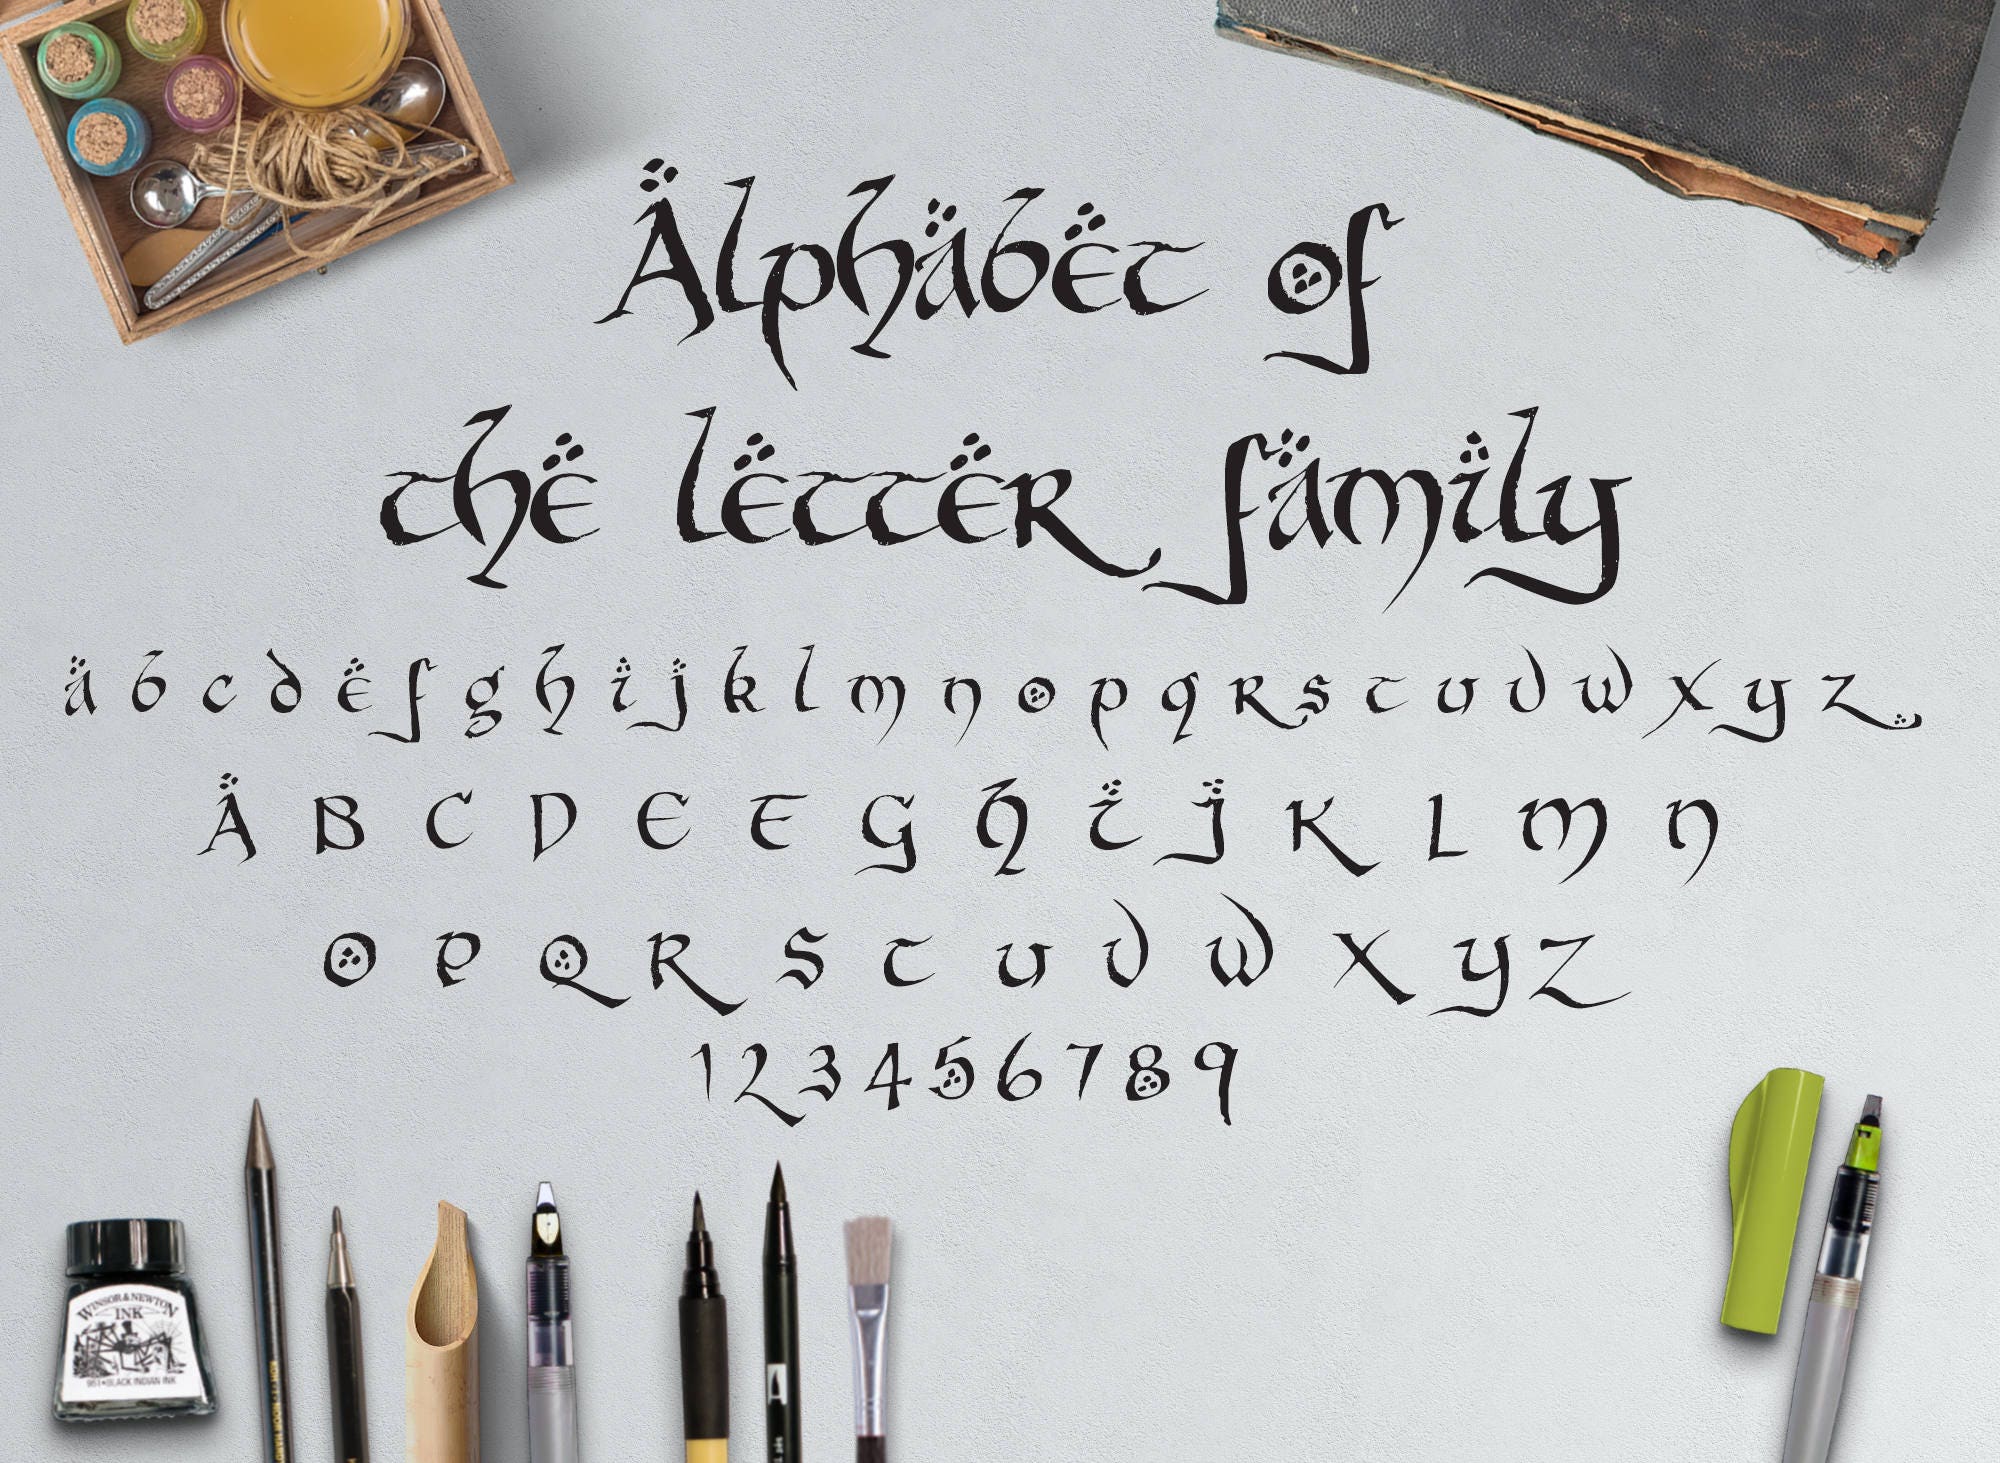 Alphabet of
the letter family
a b c d e f g h i j k l m n o p q r s t u v w x y z
A B C D E F G H I J K L M N
O P Q R S T U V W X Y Z
1 2 3 4 5 6 7 8 9
WINSOR & NEWTON
INK
951 • BLACK INDIAN INK